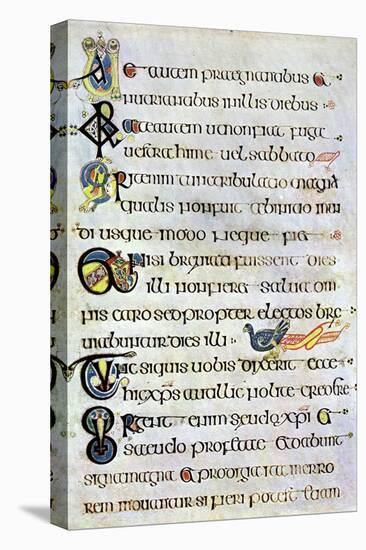 Uae autem praegnantibus &
nutrientibus in illis diebus
Orate autem ut non fiat fuga
uestra hieme uel sabbato
Erit enim tunc tribulatio magna
qualis non fuit ab initio mun
di usque modo neque fiet
Et nisi breuiati fuissent dies
illi non fieret salua om
nis caro sed propter electos bre
uiabuntur dies illi
Tunc si quis uobis dixerit ecce
hic xps aut illic nolite credere
Surgent enim seudo xpi &
seudo profetae et dabunt
signa magna & prodigia ita in erro
rem moueantur si fieri potest etiam